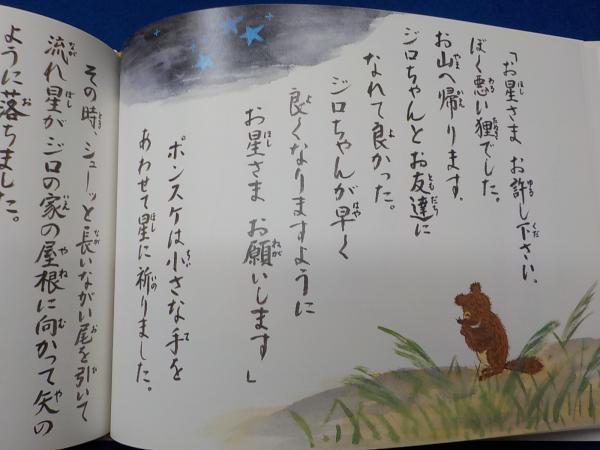 「お星さま お許し下さい。
ぼく悪い狸でした。
お山へ帰ります。
ジロちゃんとお友達に
なれて良かった。
ジロちゃんが早く
良くなりますように
お星さま お願いします」
ポンスケは小さな手を
あわせて星に祈りました。
その時、シューッと長いながい尾を引いて
流れ星がジロの家の屋根に向かって矢の
ように落ちました。